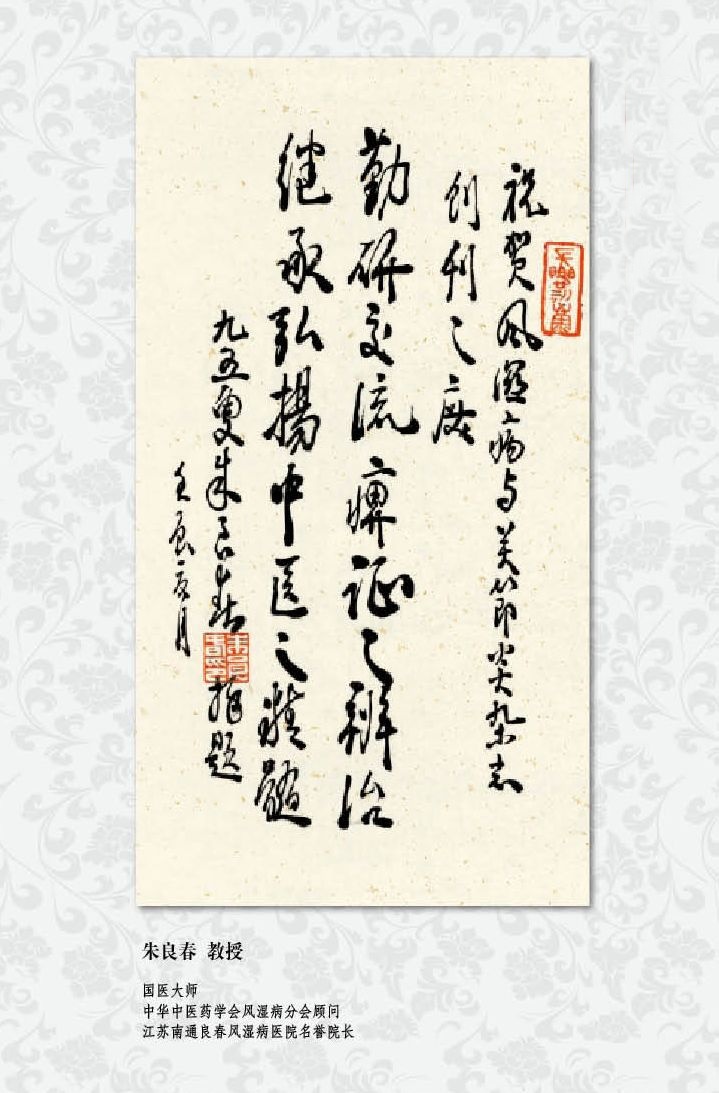 祝贺风湿病与关节炎杂志
创刊之庆
勤研交流痹证之辨治
继承弘扬中医之精髓
九五叟朱良春
拜题
壬辰夏月
朱良春 教授
国医大师
中华中医药学会风湿病分会顾问
江苏南通良春风湿病医院名誉院长